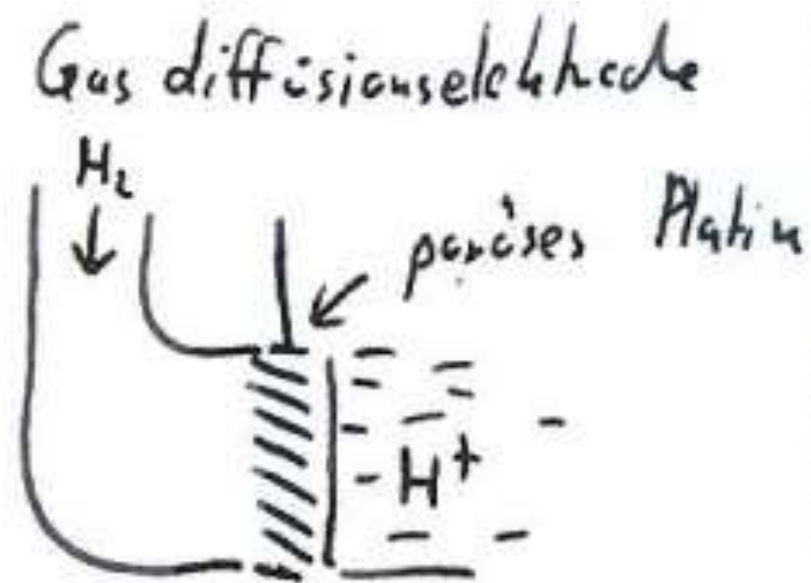 Gasdiffusionselektrode
H₂
poröses Platin
H⁺